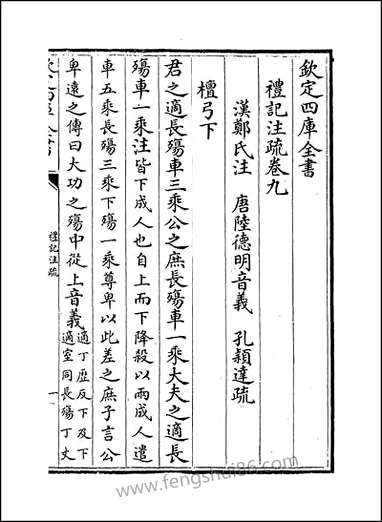 欽定四庫全書
禮記注疏卷九
漢鄭氏注 唐陸德明音義 孔穎達疏
檀弓下
君之適長殤車三乘公之庶長殤車一乘大夫之適長
殤車一乘注皆下成人也自上而下降殺以兩成人遣
車五乘長殤三乘下殤一乘尊卑以此差之庶子言公
卑遠之傳曰大功之殤中從上音義適丁歴反下及下
適室同長殤丁丈
禮記注疏
一
www.fengshui86.com